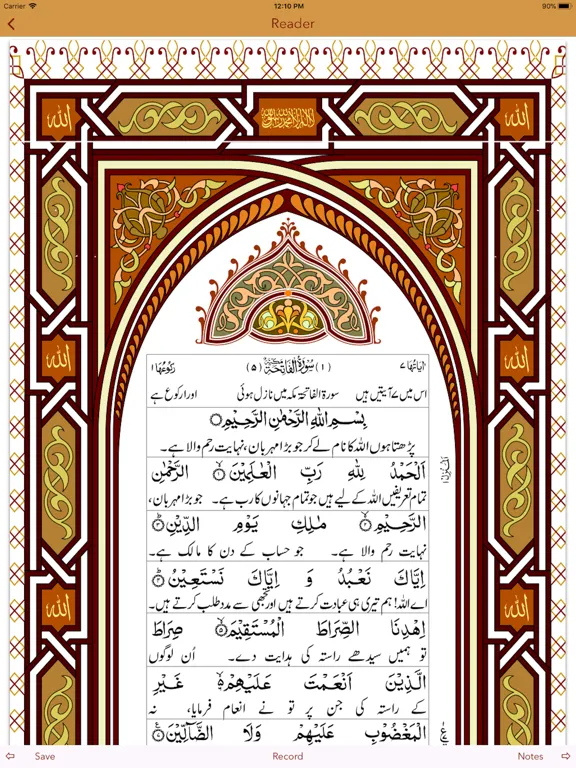 Carrier 12:10 PM 90%
Reader
الله لا اله الا الله محمد رسول الله الله
الله الله
اٰیَاتُهَا ۷ (۱) سُوْرَةُ الْفَاتِحَةِ مَكِّیَّةٌ (۵) رُكُوْعُهَا ۱
اس میں ۷ آیتیں ہیں سورۃ الفاتحۃ مکہ میں نازل ہوئی اور ۱ رکوع ہے
بِسْمِ اللهِ الرَّحْمٰنِ الرَّحِیْمِ
پڑھتا ہوں اللہ کا نام لے کر جو بڑا مہربان، نہایت رحم والا ہے۔
اَلْحَمْدُ لِلّٰهِ رَبِّ الْعٰلَمِیْنَ ۙ۱ الرَّحْمٰنِ
تمام تعریفیں اللہ کے لیے ہیں جو تمام جہانوں کا رب ہے۔ جو بڑا مہربان،
الرَّحِیْمِ ۙ۲ مٰلِكِ یَوْمِ الدِّیْنِ ؕ۳
نہایت رحم والا ہے۔ جو حساب کے دن کا مالک ہے۔
اِیَّاكَ نَعْبُدُ وَ اِیَّاكَ نَسْتَعِیْنُ ؕ۴
اے اللہ! ہم تیری ہی عبادت کرتے ہیں اور تجھی سے مدد طلب کرتے ہیں۔
اِهْدِنَا الصِّرَاطَ الْمُسْتَقِیْمَ ۙ۵ صِرَاطَ
تو ہمیں سیدھے راستہ کی ہدایت دے۔ اُن لوگوں
الَّذِیْنَ اَنْعَمْتَ عَلَیْهِمْ ۙ۶ غَیْرِ
کے راستہ کی جن پر تو نے انعام فرمایا، نہ
الله الله
الْمَغْضُوْبِ عَلَیْهِمْ وَلَا الضَّآلِّیْنَ ۷
Save Record Notes